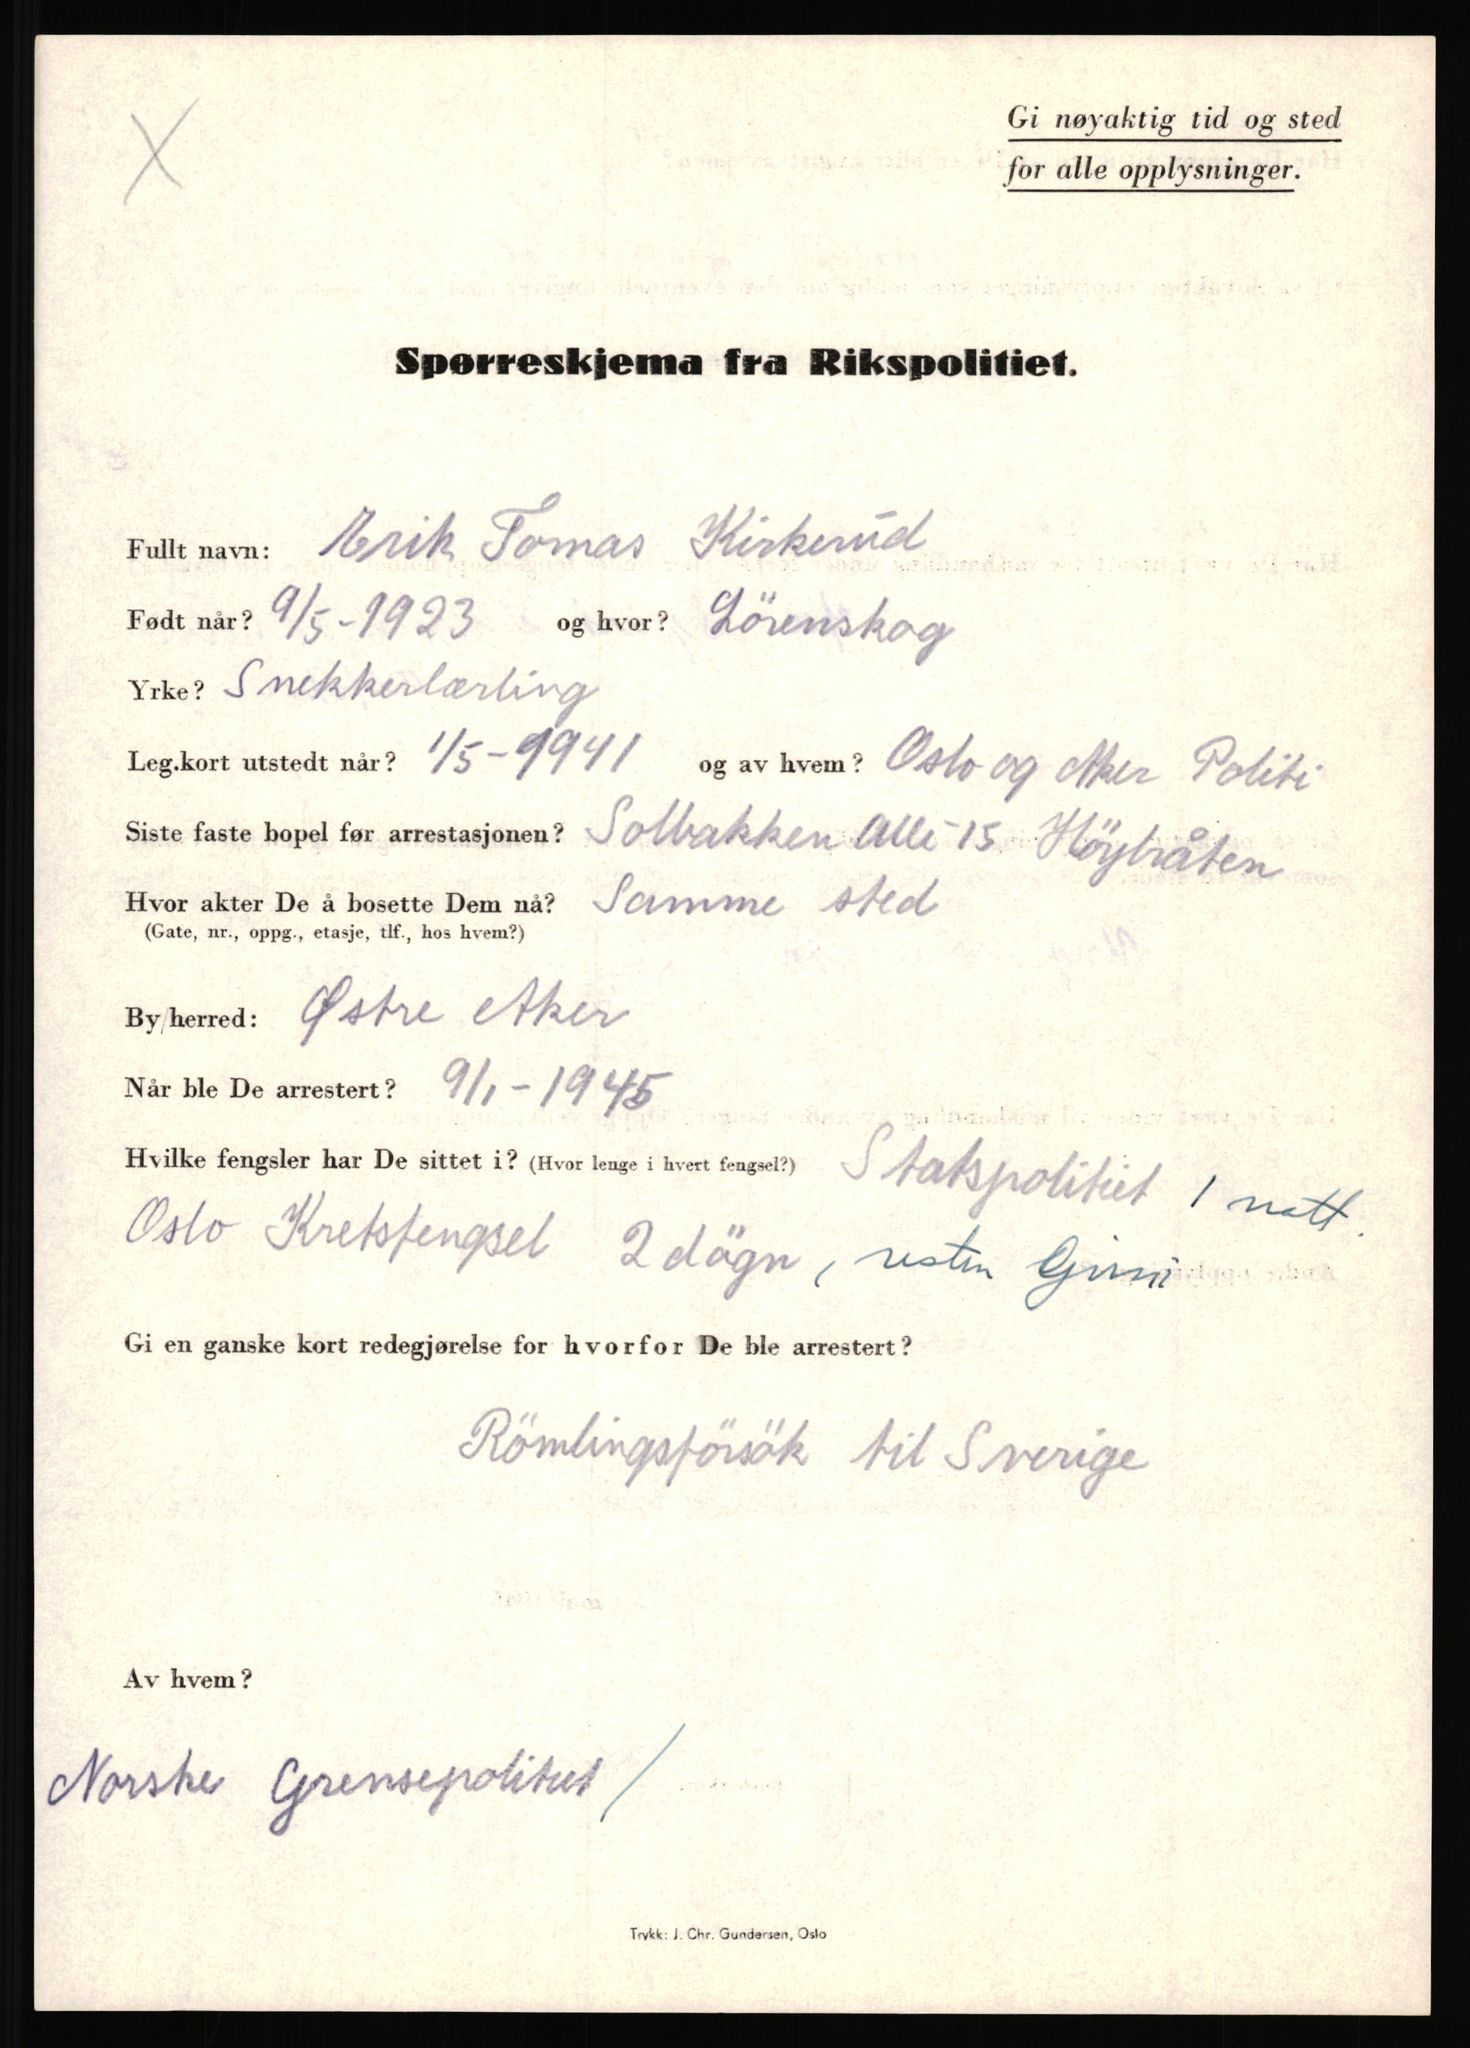 Gi nøyaktig tid og sted
for alle opplysninger.
Spørreskjema fra Rikspolitiet.
Fullt navn: Erik Tomas Kirkerud
Født når? 9/5-1923 og hvor? Lörenskog
Yrke? Snekkerlærling
Leg.kort utstedt når? 1/5-1941 og av hvem? Oslo og Aker Politi
Siste faste bopel før arrestasjonen? Solbakken Alle 15 Höybråten
Hvor akter De å bosette Dem nå? Samme sted
(Gate, nr., oppg., etasje, tlf., hos hvem?)
By/herred: Østre Aker
Når ble De arrestert? 9/1-1945
Hvilke fengsler har De sittet i? (Hvor lenge i hvert fengsel?) Statspolitiet 1 natt.
Oslo Kretsfengsel 2 dögn, resten Grini
Gi en ganske kort redegjørelse for hvorfor De ble arrestert?
Römlingsförsök til Sverige
Av hvem?
Norske Grensepolitiet /
Trykk: J. Chr. Gundersen, Oslo